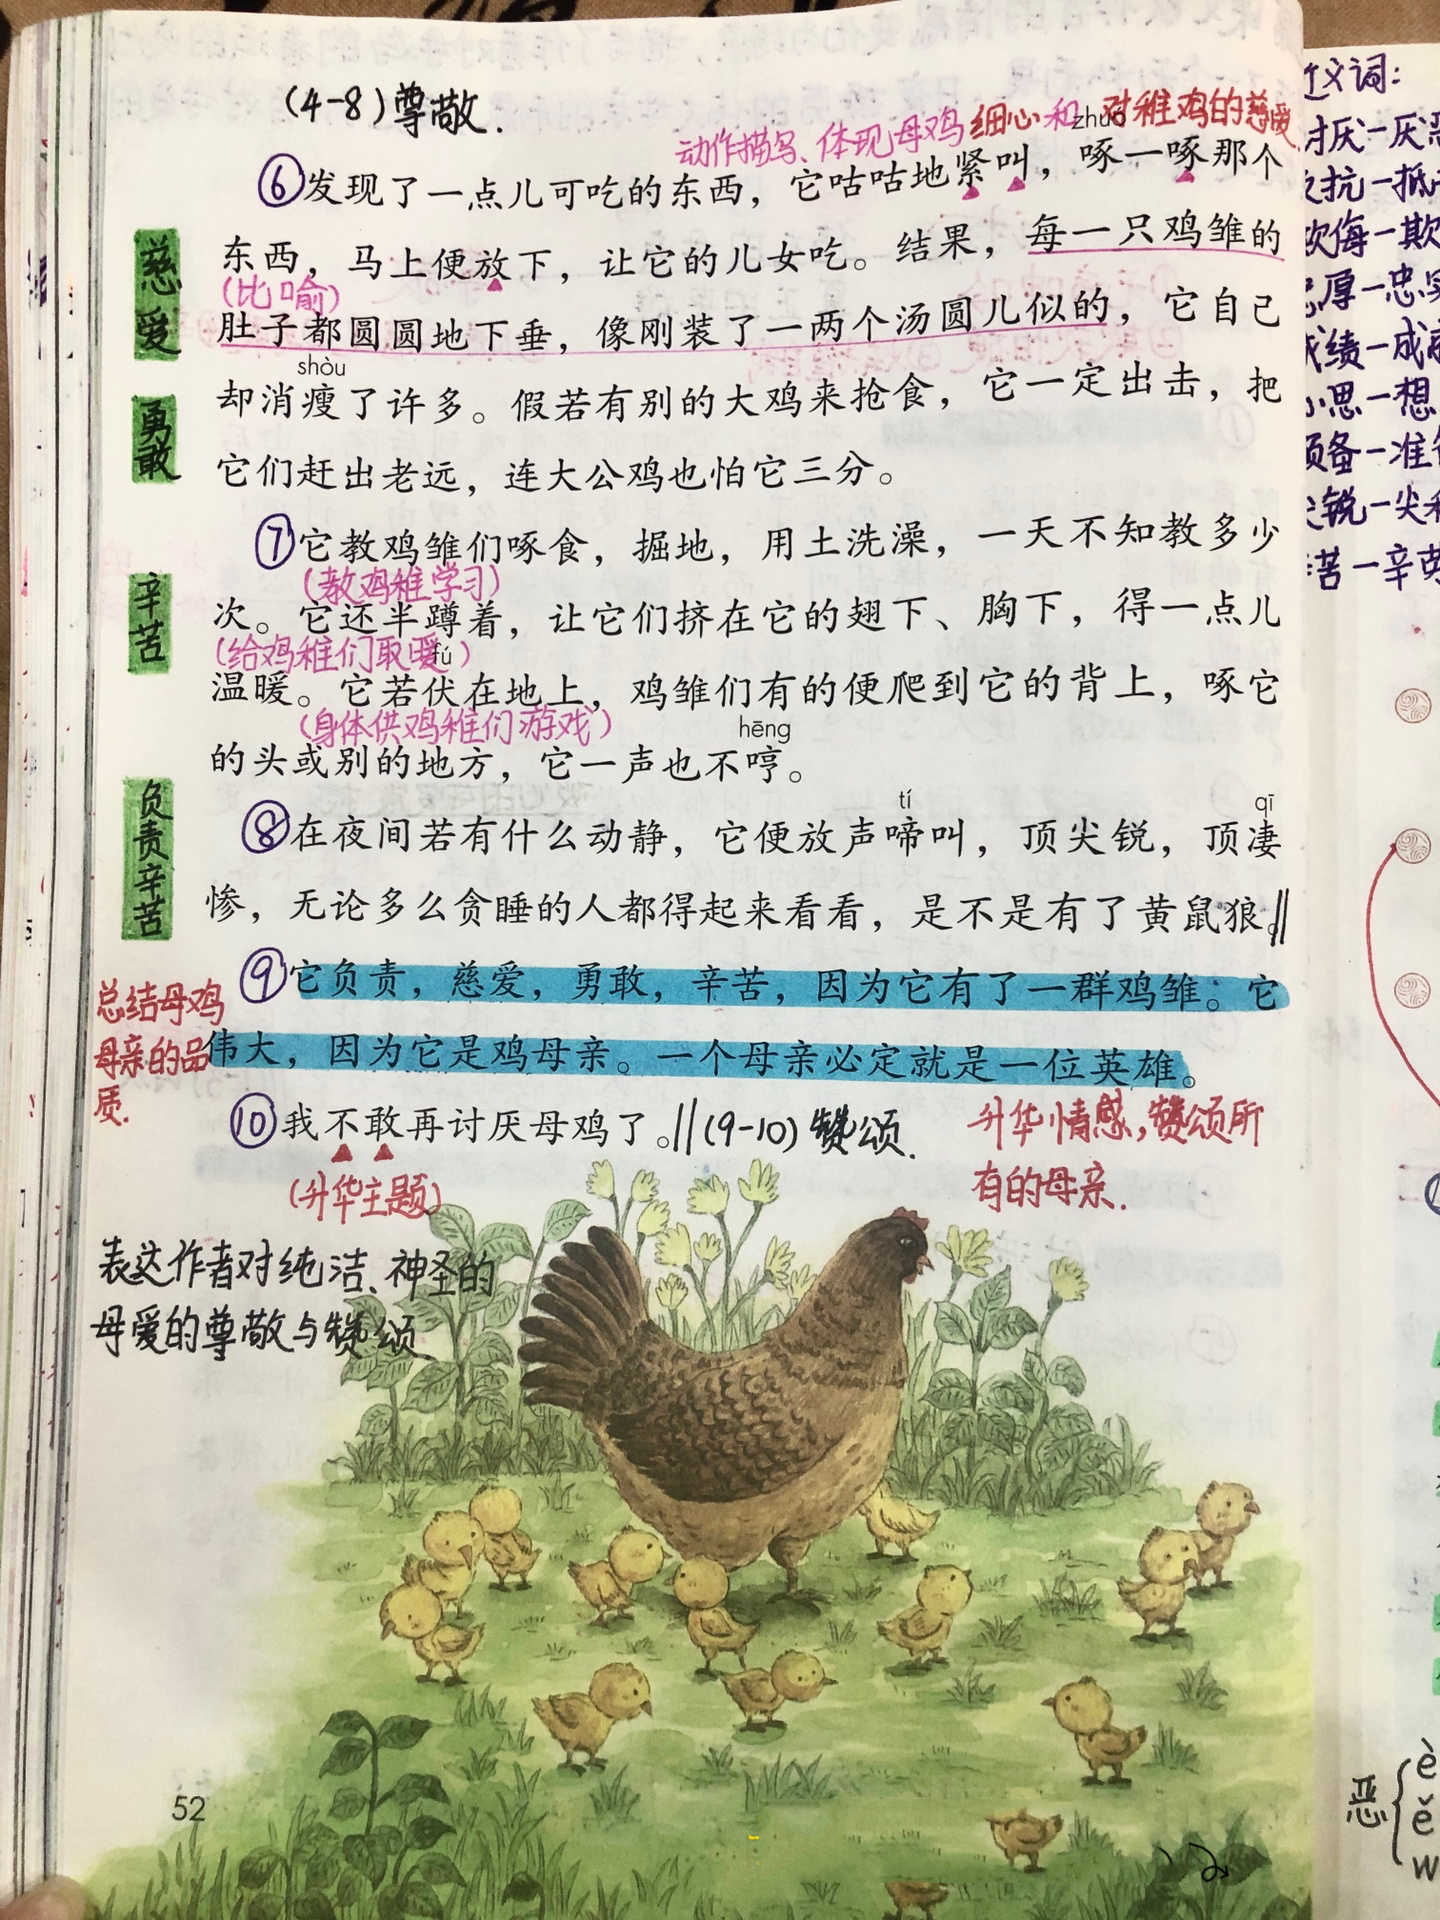 (4-8)尊敬.
动作描写、体现母鸡细心和对稚鸡的慈爱
zhuó
⑥发现了一点儿可吃的东西，它咕咕地紧叫，啄一啄那个
慈爱
东西，马上便放下，让它的儿女吃。结果，每一只鸡雏的
(比喻)
肚子都圆圆地下垂，像刚装了一两个汤圆儿似的，它自己
shòu
却消瘦了许多。假若有别的大鸡来抢食，它一定出击，把
勇敢
它们赶出老远，连大公鸡也怕它三分。
⑦它教鸡雏们啄食，掘地，用土洗澡，一天不知教多少
(教鸡稚学习)
辛苦
次。它还半蹲着，让它们挤在它的翅下、胸下，得一点儿
(给鸡稚们取暖)
fú
温暖。它若伏在地上，鸡雏们有的便爬到它的背上，啄它
(身体供鸡稚们游戏)
hēng
的头或别的地方，它一声也不哼。
负责辛苦
tí
qī
⑧在夜间若有什么动静，它便放声啼叫，顶尖锐，顶凄
惨，无论多么贪睡的人都得起来看看，是不是有了黄鼠狼。‖
⑨它负责，慈爱，勇敢，辛苦，因为它有了一群鸡雏。它
总结母鸡
母亲的品
质.
伟大，因为它是鸡母亲。一个母亲必定就是一位英雄。
⑩我不敢再讨厌母鸡了。‖(9-10)赞颂.
升华情感,赞颂所
有的母亲.
(升华主题)
表达作者对纯洁、神圣的
母爱的尊敬与赞颂.
52
近义词:
讨厌—厌
反抗—抵
欺侮—欺
忠厚—忠实
成绩—成
心思—想
预备—准
尖锐—尖
辛苦—辛
恶
è
ě
w